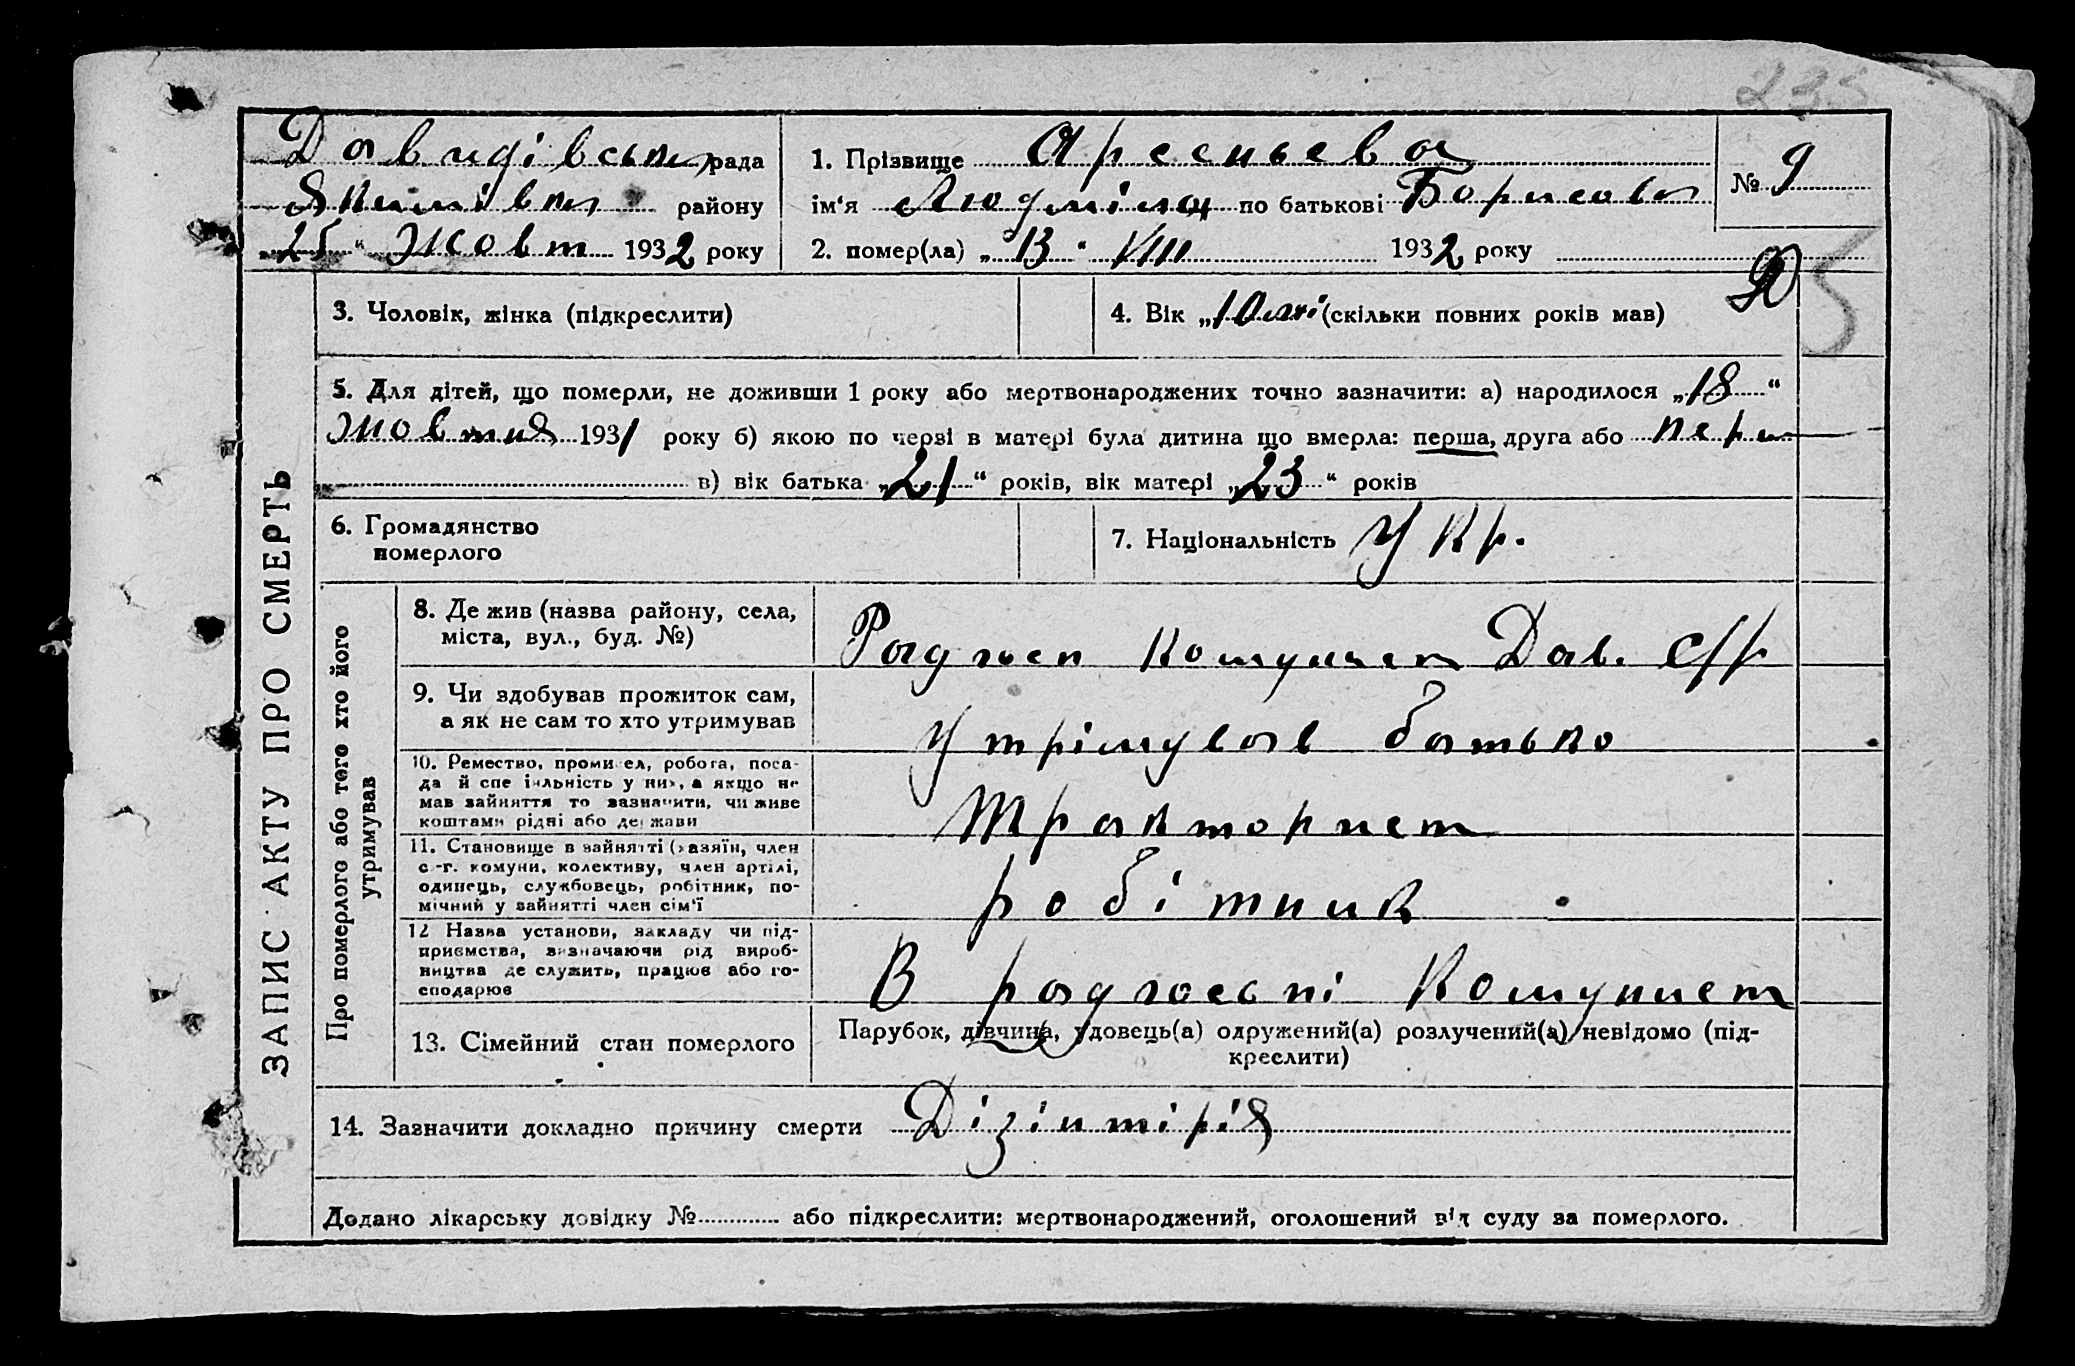 235
Давидівська рада
Якимівка району
„25“ Жовт 1932 року
1. Прізвище Арсеньєва
ім'я Людміла по батькові Борисова
2. помер(ла) „13“ VIII 1932 року
№ 9
3. Чоловік, жінка (підкреслити)
4. Вік „10 м“ (скільки повних років мав)
5. Для дітей, що померли, не доживши 1 року або мертвонароджених точно зазначити: а) народилося „18“
Жовтня 1931 року б) якою по черзі в матері була дитина що вмерла: перша, друга або перш
в) вік батька „21“ років, вік матері „23“ років
6. Громадянство
померлого
7. Національність Укр.
ЗАПИС АКТУ ПРО СМЕРТЬ
Про померлого або того хто його
утримував
8. Де жив (назва району, села,
міста, вул., буд. №)
Радгосп Комунист Дав. с/р
9. Чи здобував прожиток сам,
а як не сам то хто утримував
Утрімував батько
10. Ремество, промисел, робота, поса-
да й спеціяльність у них, а якщо не
мав зайняття то зазначити, чи живе
коштами рідні або держави
Тракторист
11. Становище в зайнятті (хазяїн, член
с.-г. комуни, колективу, член артілі,
одинець, службовець, робітник, по-
мічний у зайнятті член сім'ї
робітник
12 Назва установи, закладу чи під-
приємства, визначаючи рід вироб-
ництва де служить, працює або го-
сподарює
В радгоспі Комунист
13. Сімейний стан померлого
Парубок, дівчина, удовець(а) одружений(а) розлучений(а) невідомо (під-
креслити)
14. Зазначити докладно причину смерти Дізінтірія
Додано лікарську довідку № або підкреслити: мертвонароджений, оголошений від суду за померлого.